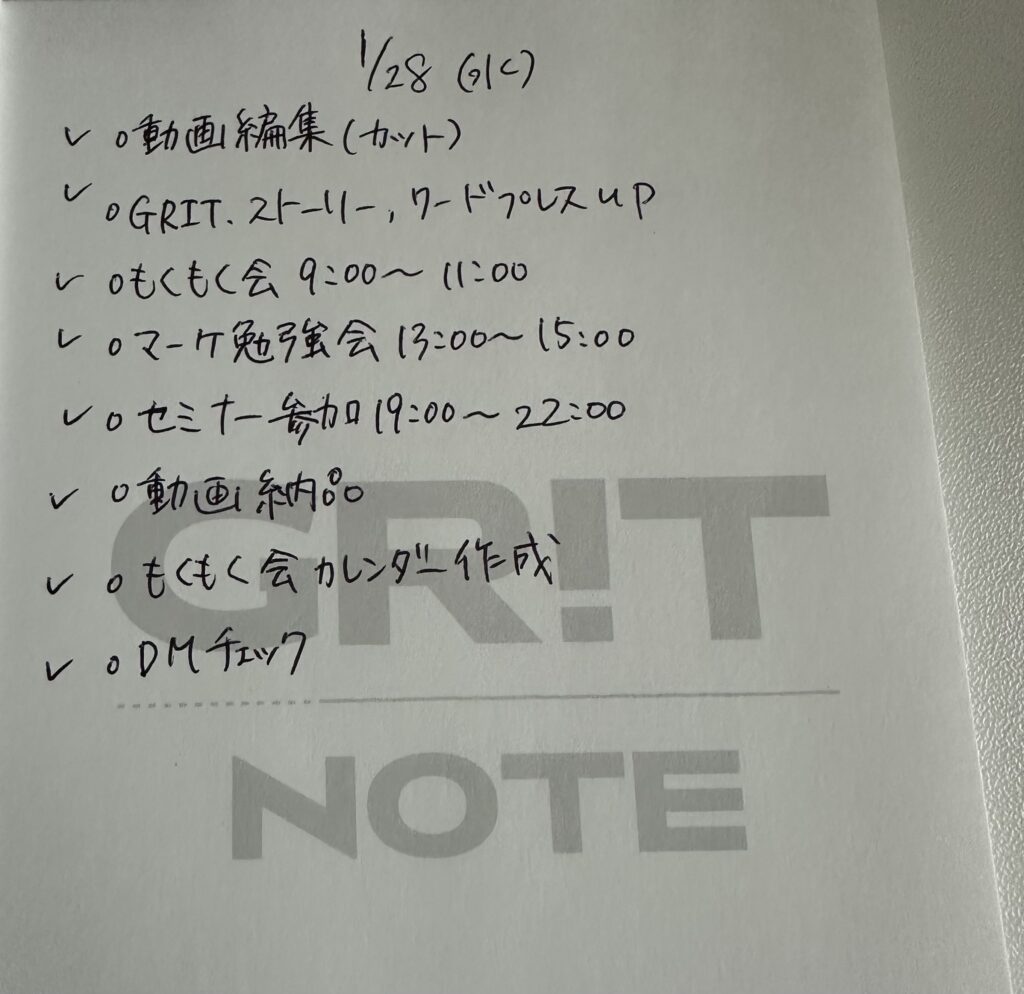 1/28 (水)
✓ ○動画編集(カット)
✓ ○GRIT.ストーリー,ワードプレスup
✓ ○もくもく会 9:00～11:00
✓ ○マーケ勉強会 13:00～15:00
✓ ○セミナー参加 19:00～22:00
✓ ○動画納品
✓ ○もくもく会カレンダー作成
✓ ○DMチェック
GR!T
NOTE